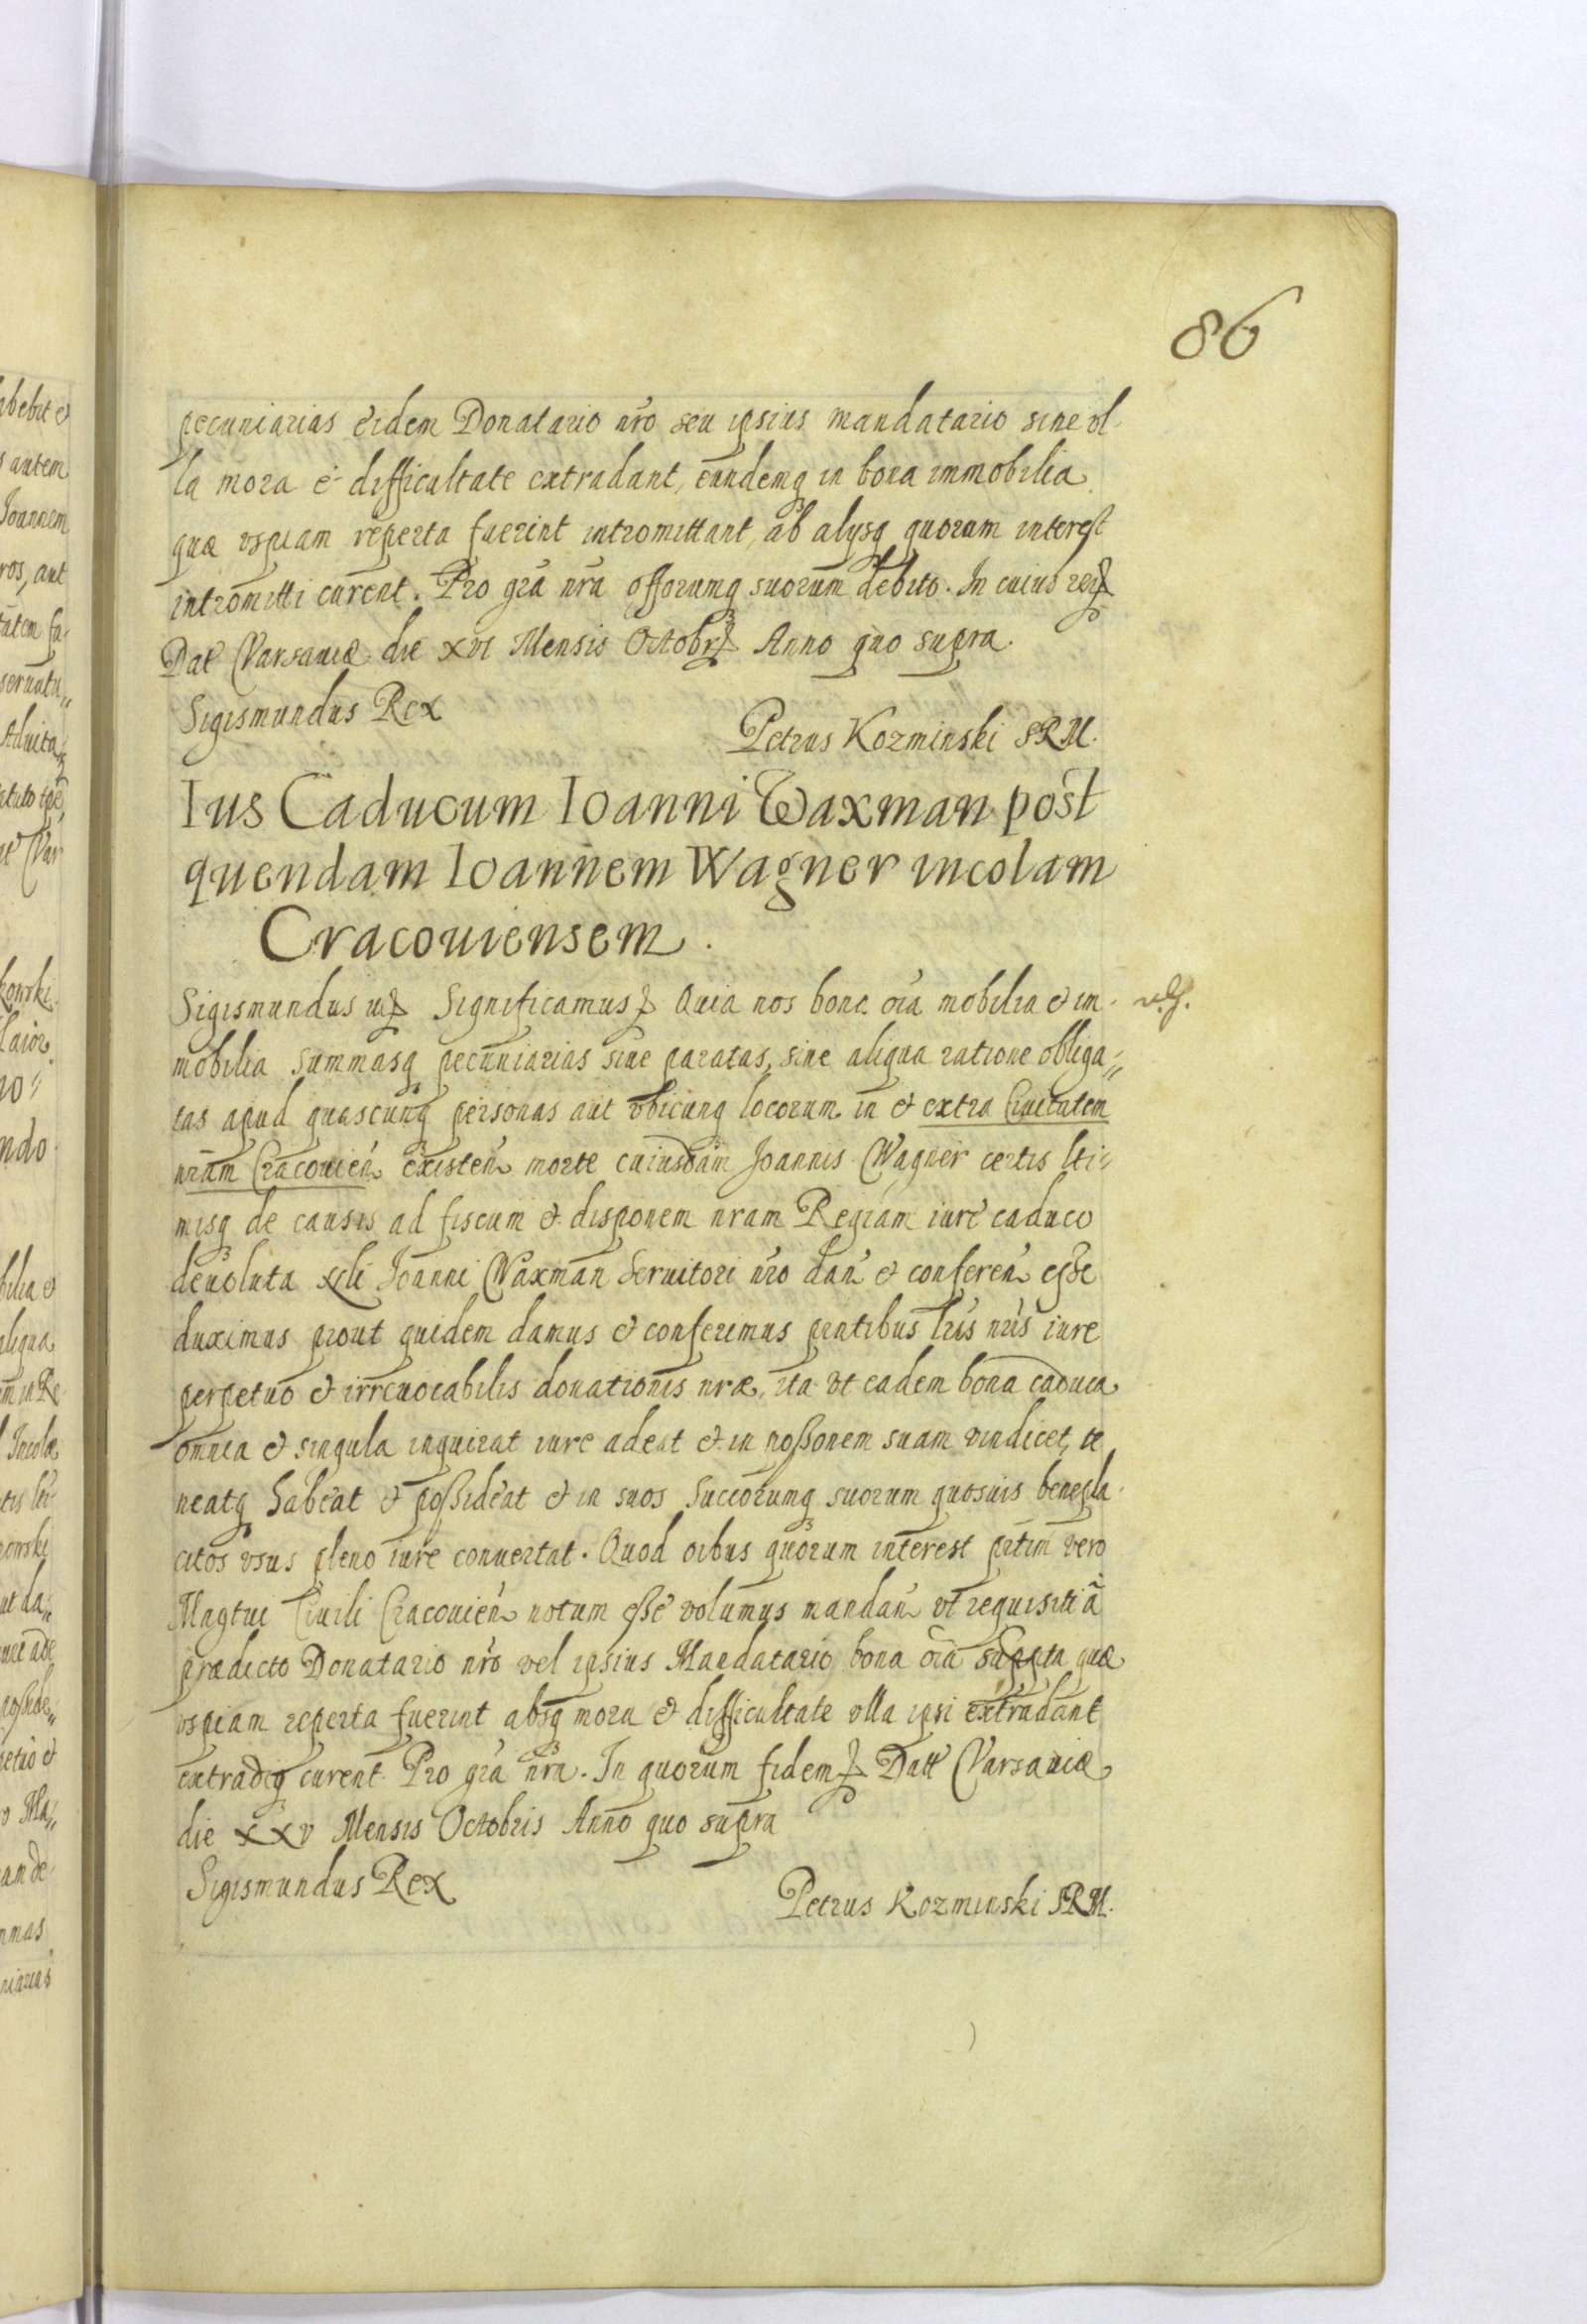 86
pecuniarias eidem Donatario nro seu ipsius mandatario sine vl-
la mora é difficultate extradant, eundemq in bona immobilia
quæ vspiam reperta fuerint intromittant, ab alysq quorum interest
intromitti curent. Pro gra nra offorumq suorum debito. In cuius rei
Dat Varsaviæ die xvi Mensis Octobr Anno quo supra.
Sigismundus Rex
Petrus Kozminski SRM.
Ius Caducum Ioanni Waxman post
quendam Ioannem Wagner incolam
Cracouiensem.
Sigismundus Significamus Quia nos bona oia mobilia & im-
mobilia summasq pecuniarias siue paratas, siue aliqua ratione obliga„
tas apud quascunq personas aut vbicunq locorum in & extra Ciuitatem
nram Cracouien existen morte cuiusdam Joannis Wagner certis lti„
misq de causis ad fiscum & disponem nram Regiam iure caduco
deuoluta Joanni Waxman Seruitori nro dan & conferen esse
duximus prout quidem damus & conferimus pntibus lris nris iure
perpetuo & irreuocabilis donationis nræ, ita vt eadem bona caduca
omnia & singula inquirat iure adeat & in poßonem suam vindicet, te
neatq habeat & poßideat & in suos succorumq suorum quosuis benepla-
citos vsus pleno iure conuertat. Quod oibus quorum interest prtim vero
Magtui Ciuili Cracouien notum eße volumus mandan vt requisiti ã
prædicto Donatario nro vel ipsius Mandatario bona oia suppta quæ
vspiam reperta fuerint absq mora & difficultate vlla ipsi extradant
extradiq curent Pro gra nra. In quorum fidem Datt Varsaviæ
die xxv Mensis Octobris Anno quo supra
Sigismundus Rex
Petrus Kozminski SRM.